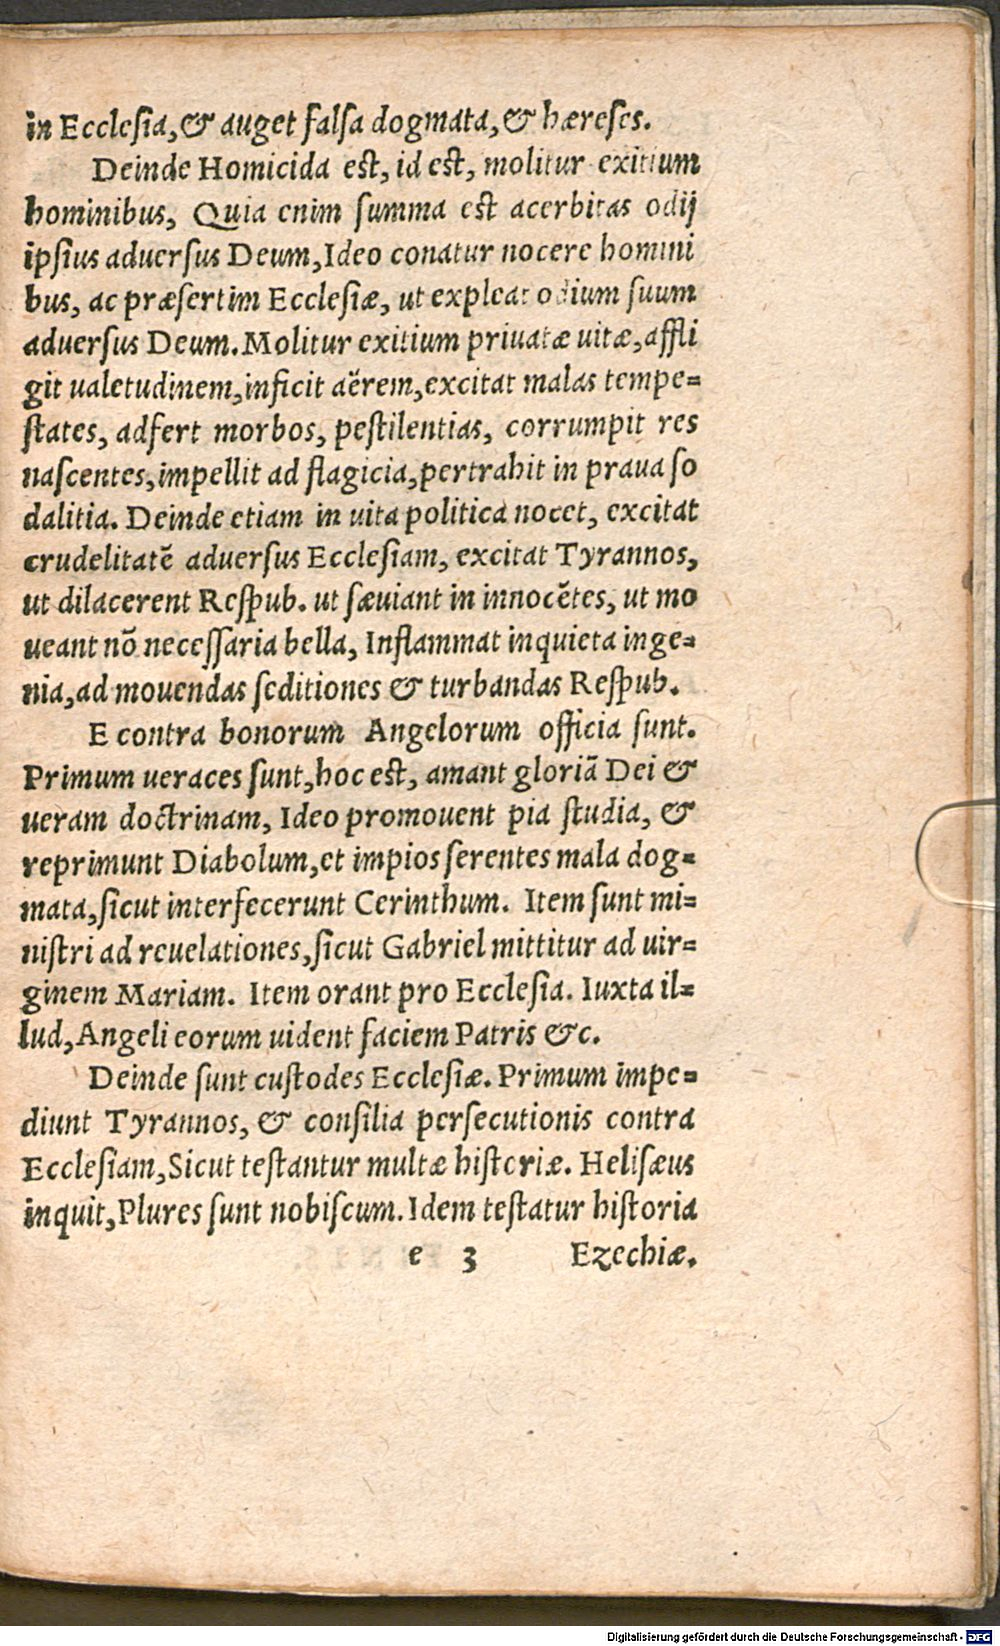 in Ecclesia, & auget falsa dogmata, & hæreses.
Deinde Homicida est, id est, molitur exitium
hominibus, Quia enim summa est acerbitas odij
ipsius aduersus Deum, Ideo conatur nocere homini
bus, ac præsertim Ecclesiæ, ut expleat odium suum
aduersus Deum. Molitur exitium priuatæ uitæ, affli
git ualetudinem, inficit aërem, excitat malas tempe=
states, adfert morbos, pestilentias, corrumpit res
nascentes, impellit ad flagicia, pertrahit in praua so
dalitia. Deinde etiam in uita politica nocet, excitat
crudelitatē aduersus Ecclesiam, excitat Tyrannos,
ut dilacerent Respub. ut sæuiant in innocētes, ut mo
ueant nō necessaria bella, Inflammat inquieta inge=
nia, ad mouendas seditiones & turbandas Respub.
E contra bonorum Angelorum officia sunt.
Primum ueraces sunt, hoc est, amant gloriā Dei &
ueram doctrinam, Ideo promouent pia studia, &
reprimunt Diabolum, et impios serentes mala dog=
mata, sicut interfecerunt Cerinthum. Item sunt mi=
nistri ad reuelationes, sicut Gabriel mittitur ad uir=
ginem Mariam. Item orant pro Ecclesia. Iuxta il=
lud, Angeli eorum uident faciem Patris &c.
Deinde sunt custodes Ecclesiæ. Primum impe=
diunt Tyrannos, & consilia persecutionis contra
Ecclesiam, Sicut testantur multæ historiæ. Helisæus
inquit, Plures sunt nobiscum. Idem testatur historia
e 3 Ezechiæ.
Digitalisierung gefördert durch die Deutsche Forschungsgemeinschaft - DFG